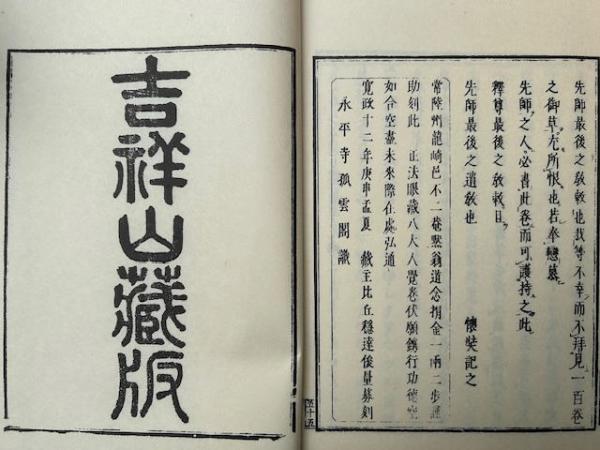 先師最後之教敕也我等不幸而不拜見一百卷
之御草尤所恨也若奉戀慕
先師之人必書此卷而可護持之此
釋尊最後之教敕且
先師最後之遺教也
懷弉記之
常陸州龍崎邑不二菴默翁道念捐金一兩二步
助刻此 正法眼藏八大人覺卷伏願鐫行功德
如合空盡未來際在處弘通
寬政十二年庚申孟夏 藏主比丘穩達俊量募刻
永平寺孤雲閣識
五十五
吉祥山藏版